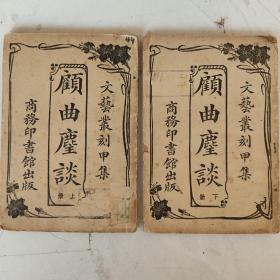 文藝叢刻甲集
顧曲麈談
上冊
商務印書館出版
文藝叢刻甲集
顧曲麈談
下冊
商務印書館出版